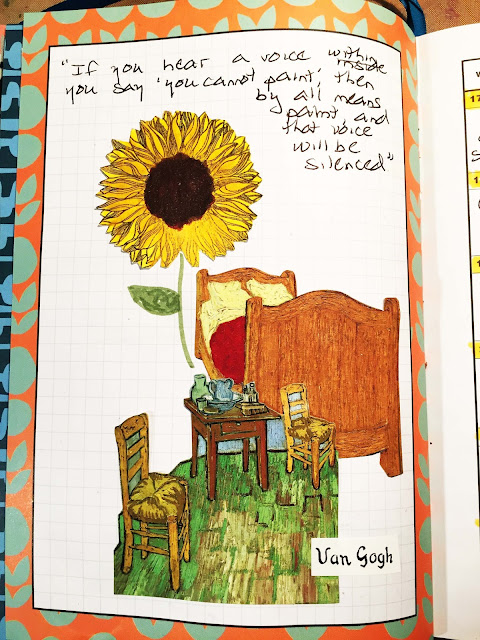 "If you hear a voice within
inside
you say 'you cannot paint,' then
by all means
paint, and
that voice
will be
silenced"
Van Gogh
17
S